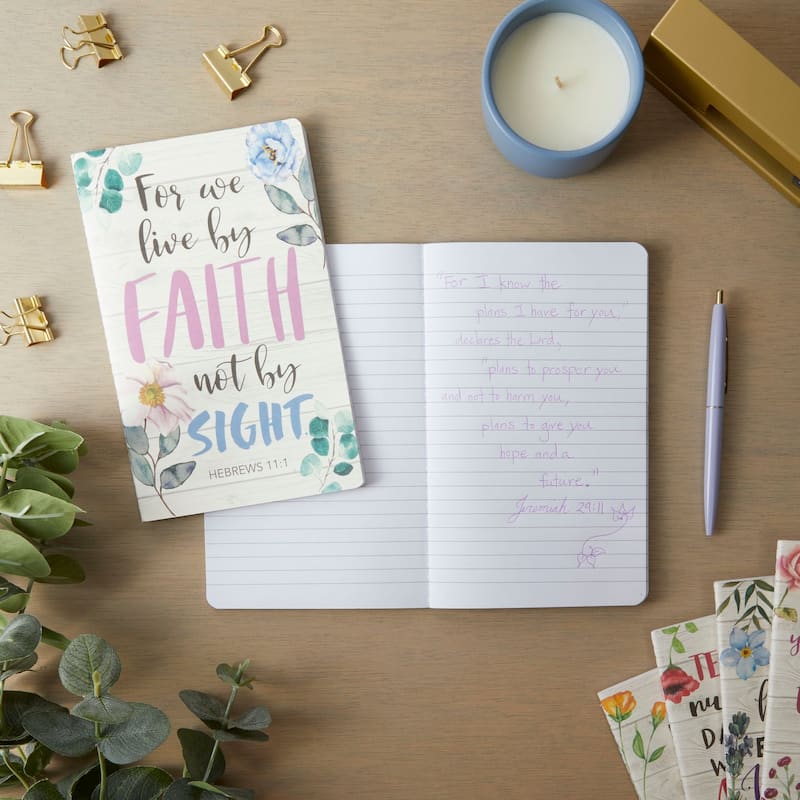 For we
live by
FAITH
not by
SIGHT.
HEBREWS 11:1
"For I know the
plans I have for you,"
declares the Lord,
"plans to prosper you
and not to harm you,
plans to give you
hope and a
future."
Jeremiah 29:11
TE
nu
DA